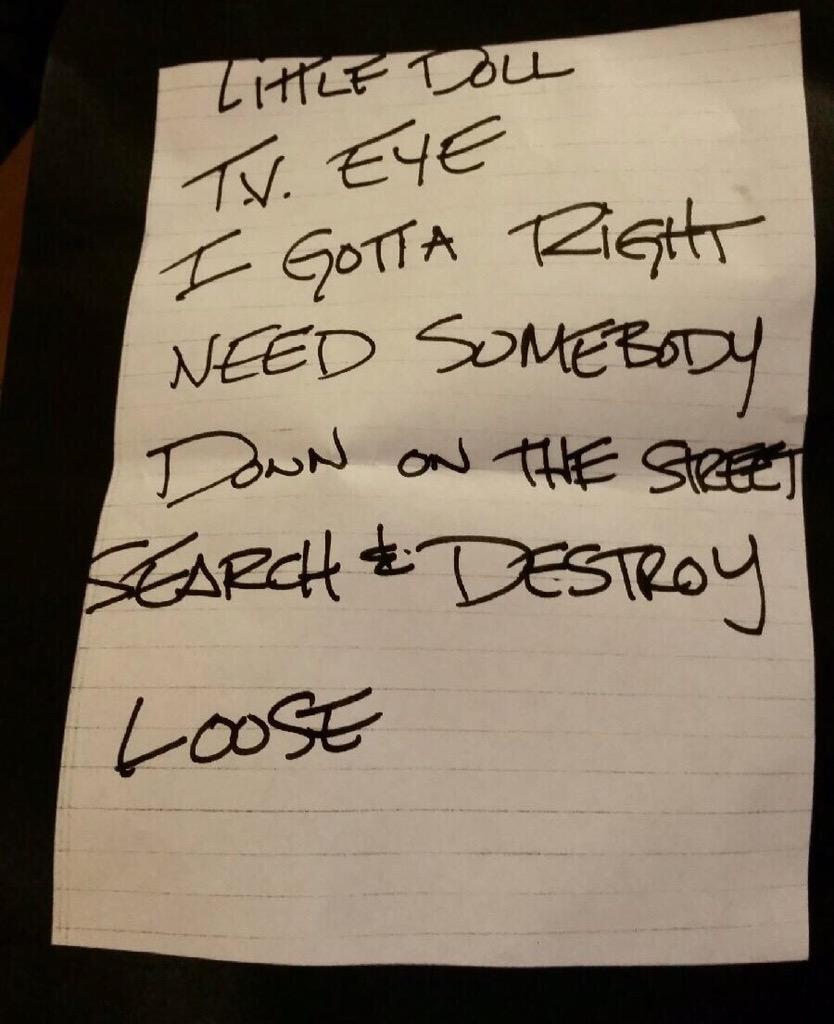 LITTLE DOLL
T.V. EYE
I GOTTA RIGHT
NEED SOMEBODY
DOWN ON THE STREET
SEARCH & DESTROY
LOOSE